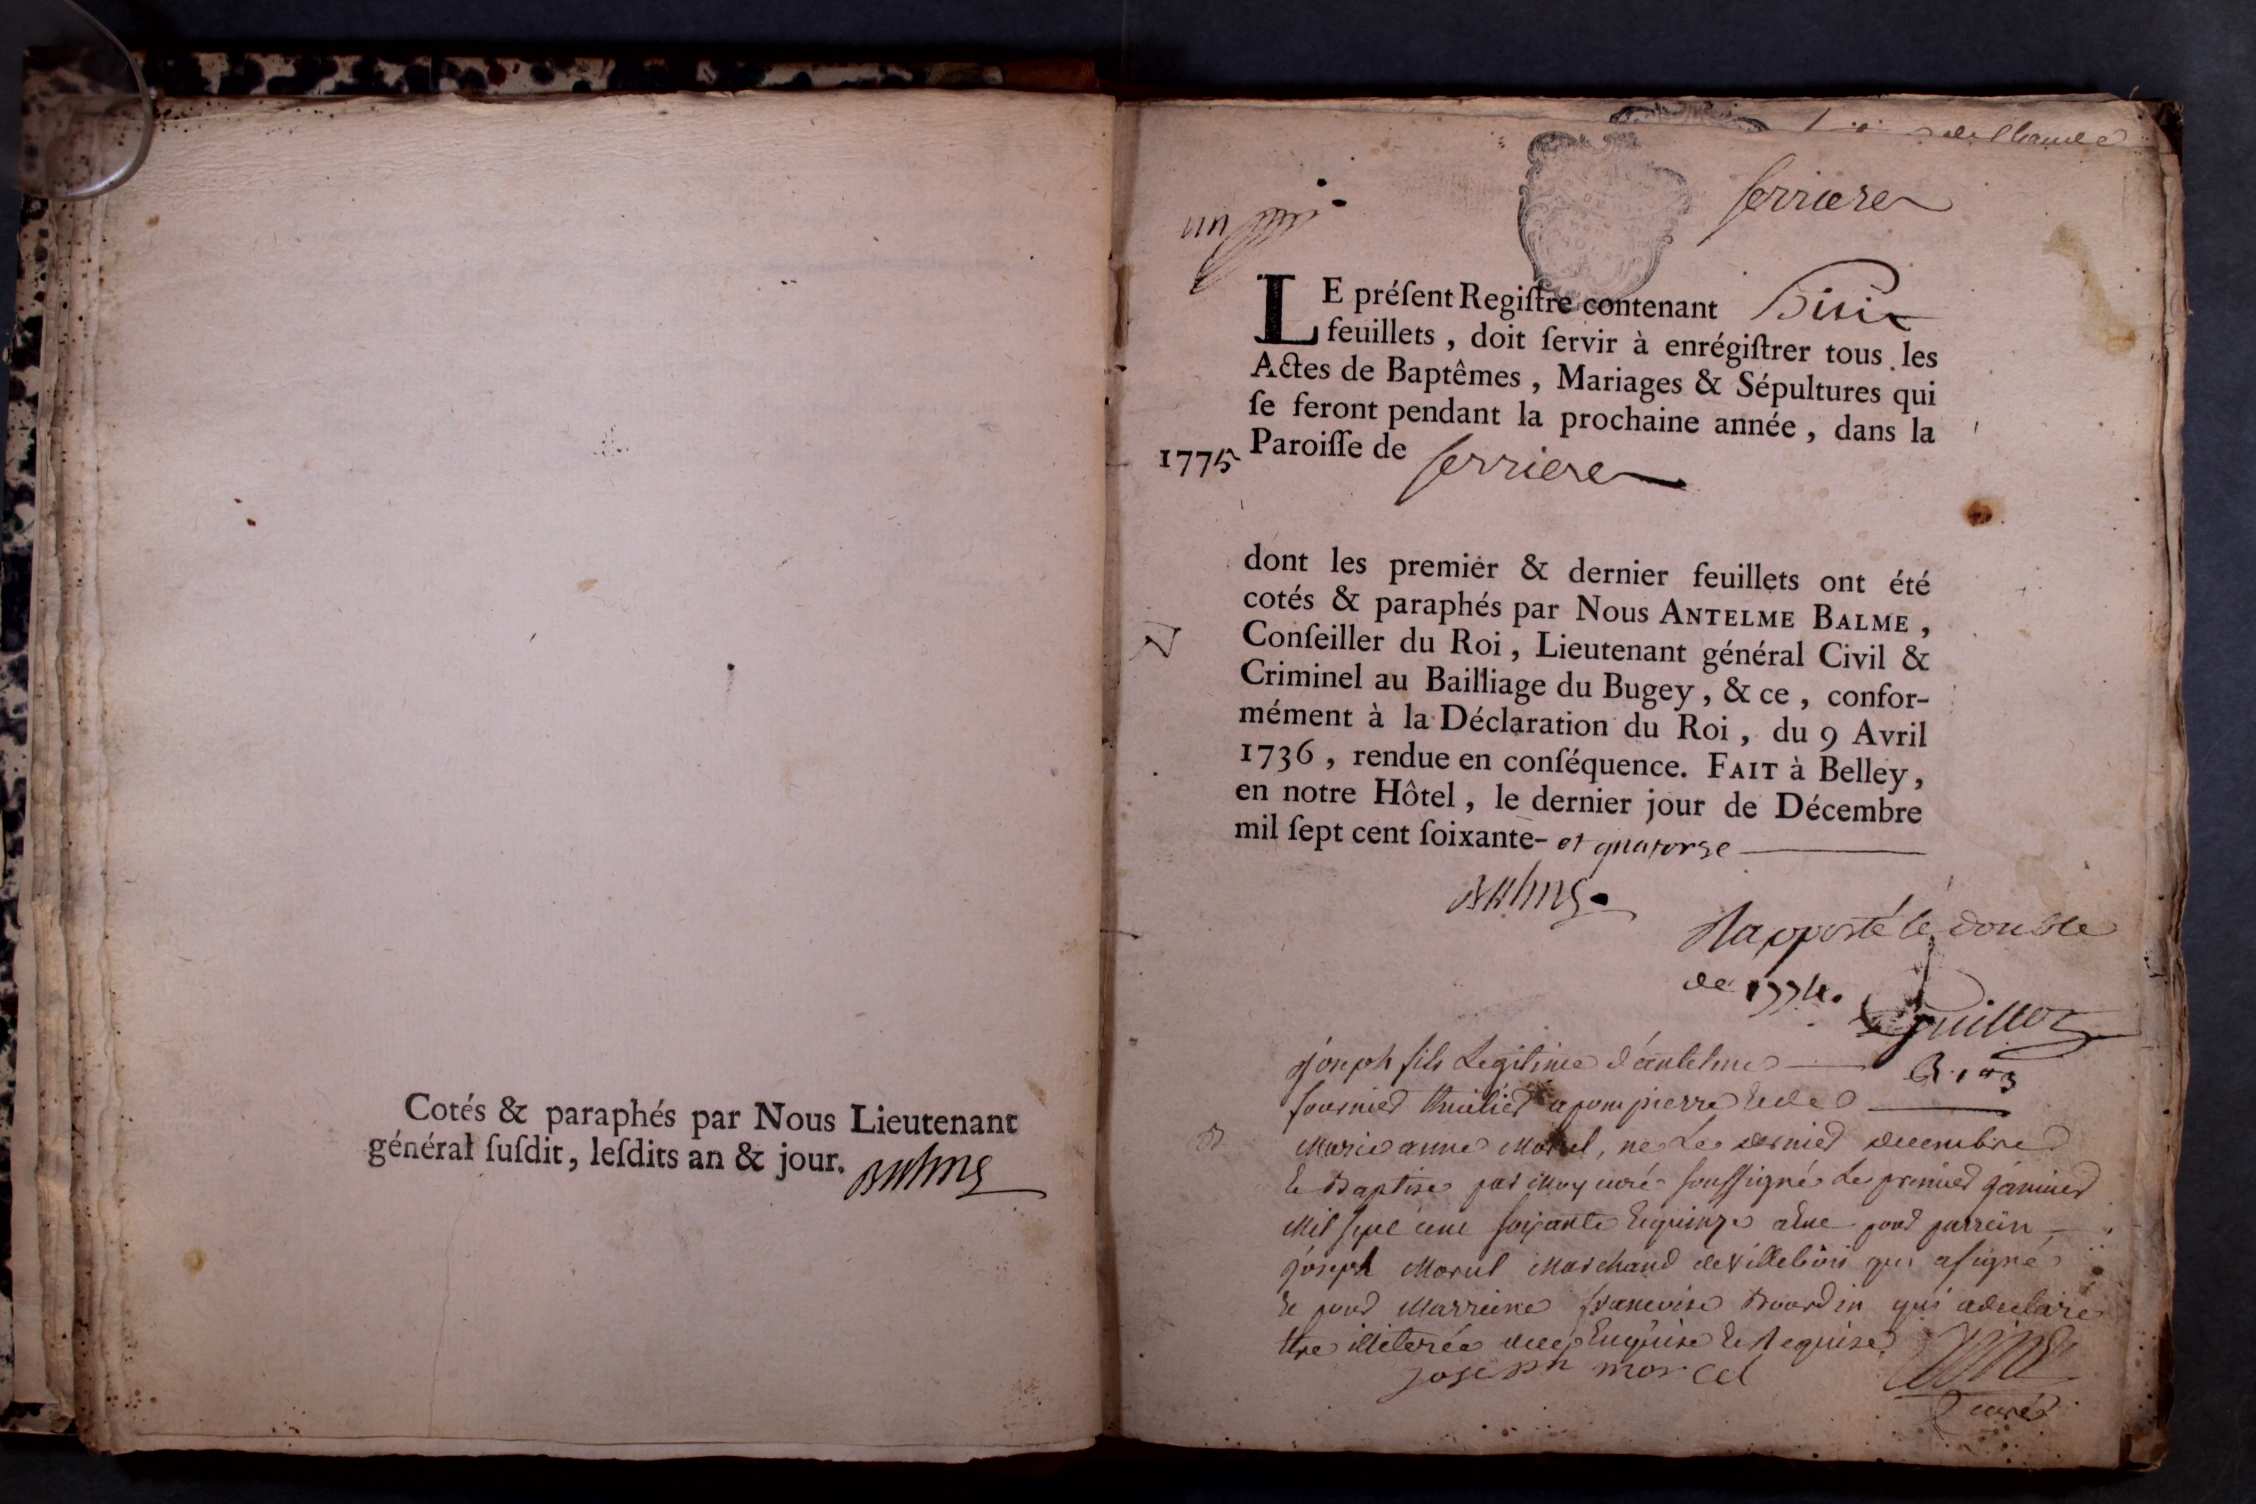 Cotés & paraphés par Nous Lieutenant
général ſuſdit, leſdits an & jour.
Balme
un
ſerriere
LE préſent Regiſtre contenant Six
feuillets, doit ſervir à enrégiſtrer tous les
Actes de Baptêmes, Mariages & Sépultures qui
ſe feront pendant la prochaine année, dans la
1775 Paroiſſe de ſerriere
dont les premier & dernier feuillets ont été
cotés & paraphés par Nous ANTELME BALME,
Conſeiller du Roi, Lieutenant général Civil &
Criminel au Bailliage du Bugey, & ce, confor-
mément à la Déclaration du Roi, du 9 Avril
1736, rendue en conſéquence. FAIT à Belley,
en notre Hôtel, le dernier jour de Décembre
mil ſept cent ſoixante- et quatorse
Balme
Rapporté le double
de 1774.
Guillot
joseph fils Legitime d'antelme
fournier a
Marie anne Morel, né Le dernier decembre
et Baptise par moy curé soussigné Le premier janvier
Mil sept cent soixante et quinze a eue pour parrein
joseph Morel Marchand de villebois qui a signé
et pour Marreine francoise Bourdin qui a declaré
etre illiterée de ce Enquise et Requise
joseph morel
curé